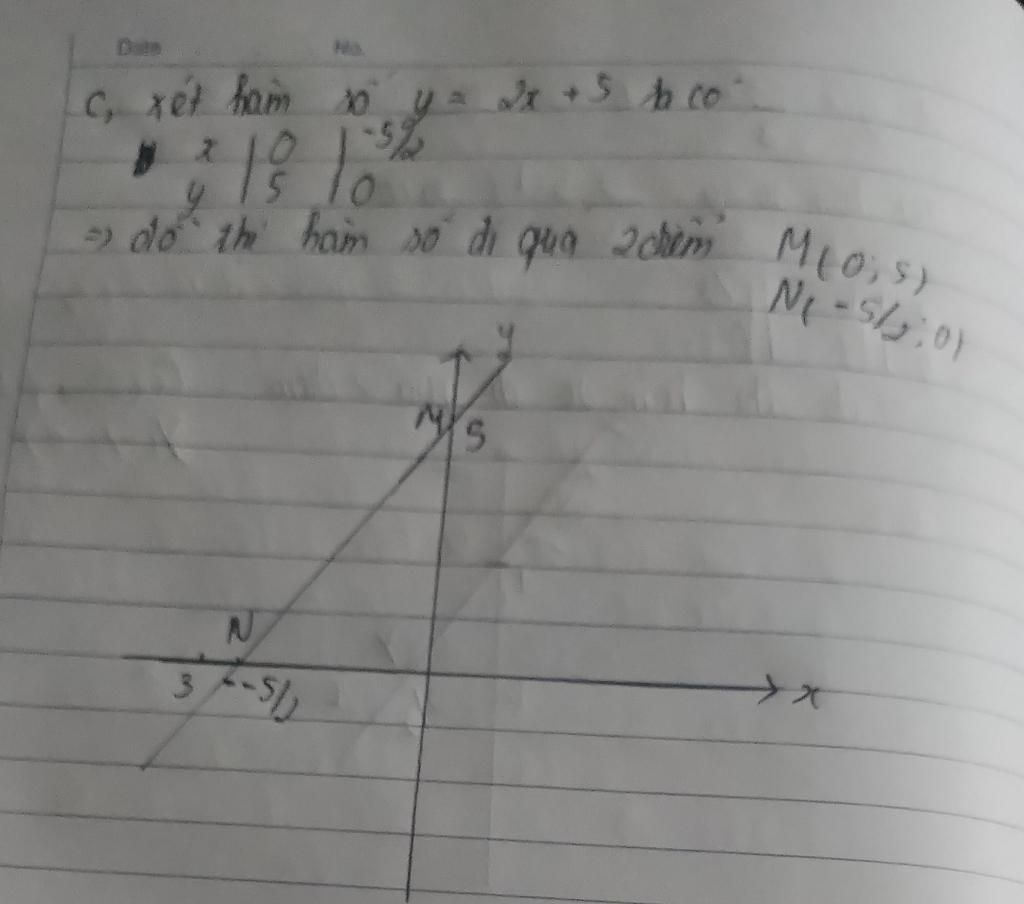 Date No.
c, xét hàm số y = 2x + 5 ta có
x | 0 | -5/2
y | 5 | 0
=> đồ thị hàm số đi qua 2 điểm M(0;5)
N(-5/2;0)
y
M 5
N
3 -5/2 x